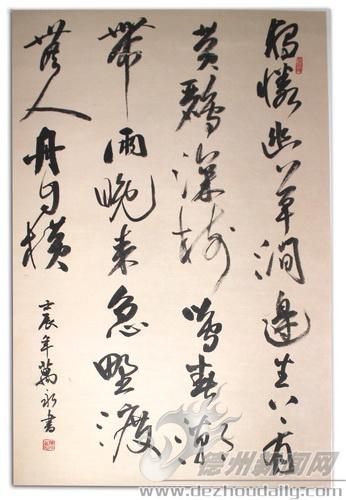 獨憐幽草澗邊生上有
黄鸝深树鳴春潮
帶雨晚来急野渡
無人舟自横
壬辰年萬永書
德州新闻网
www.dezhoudaily.com